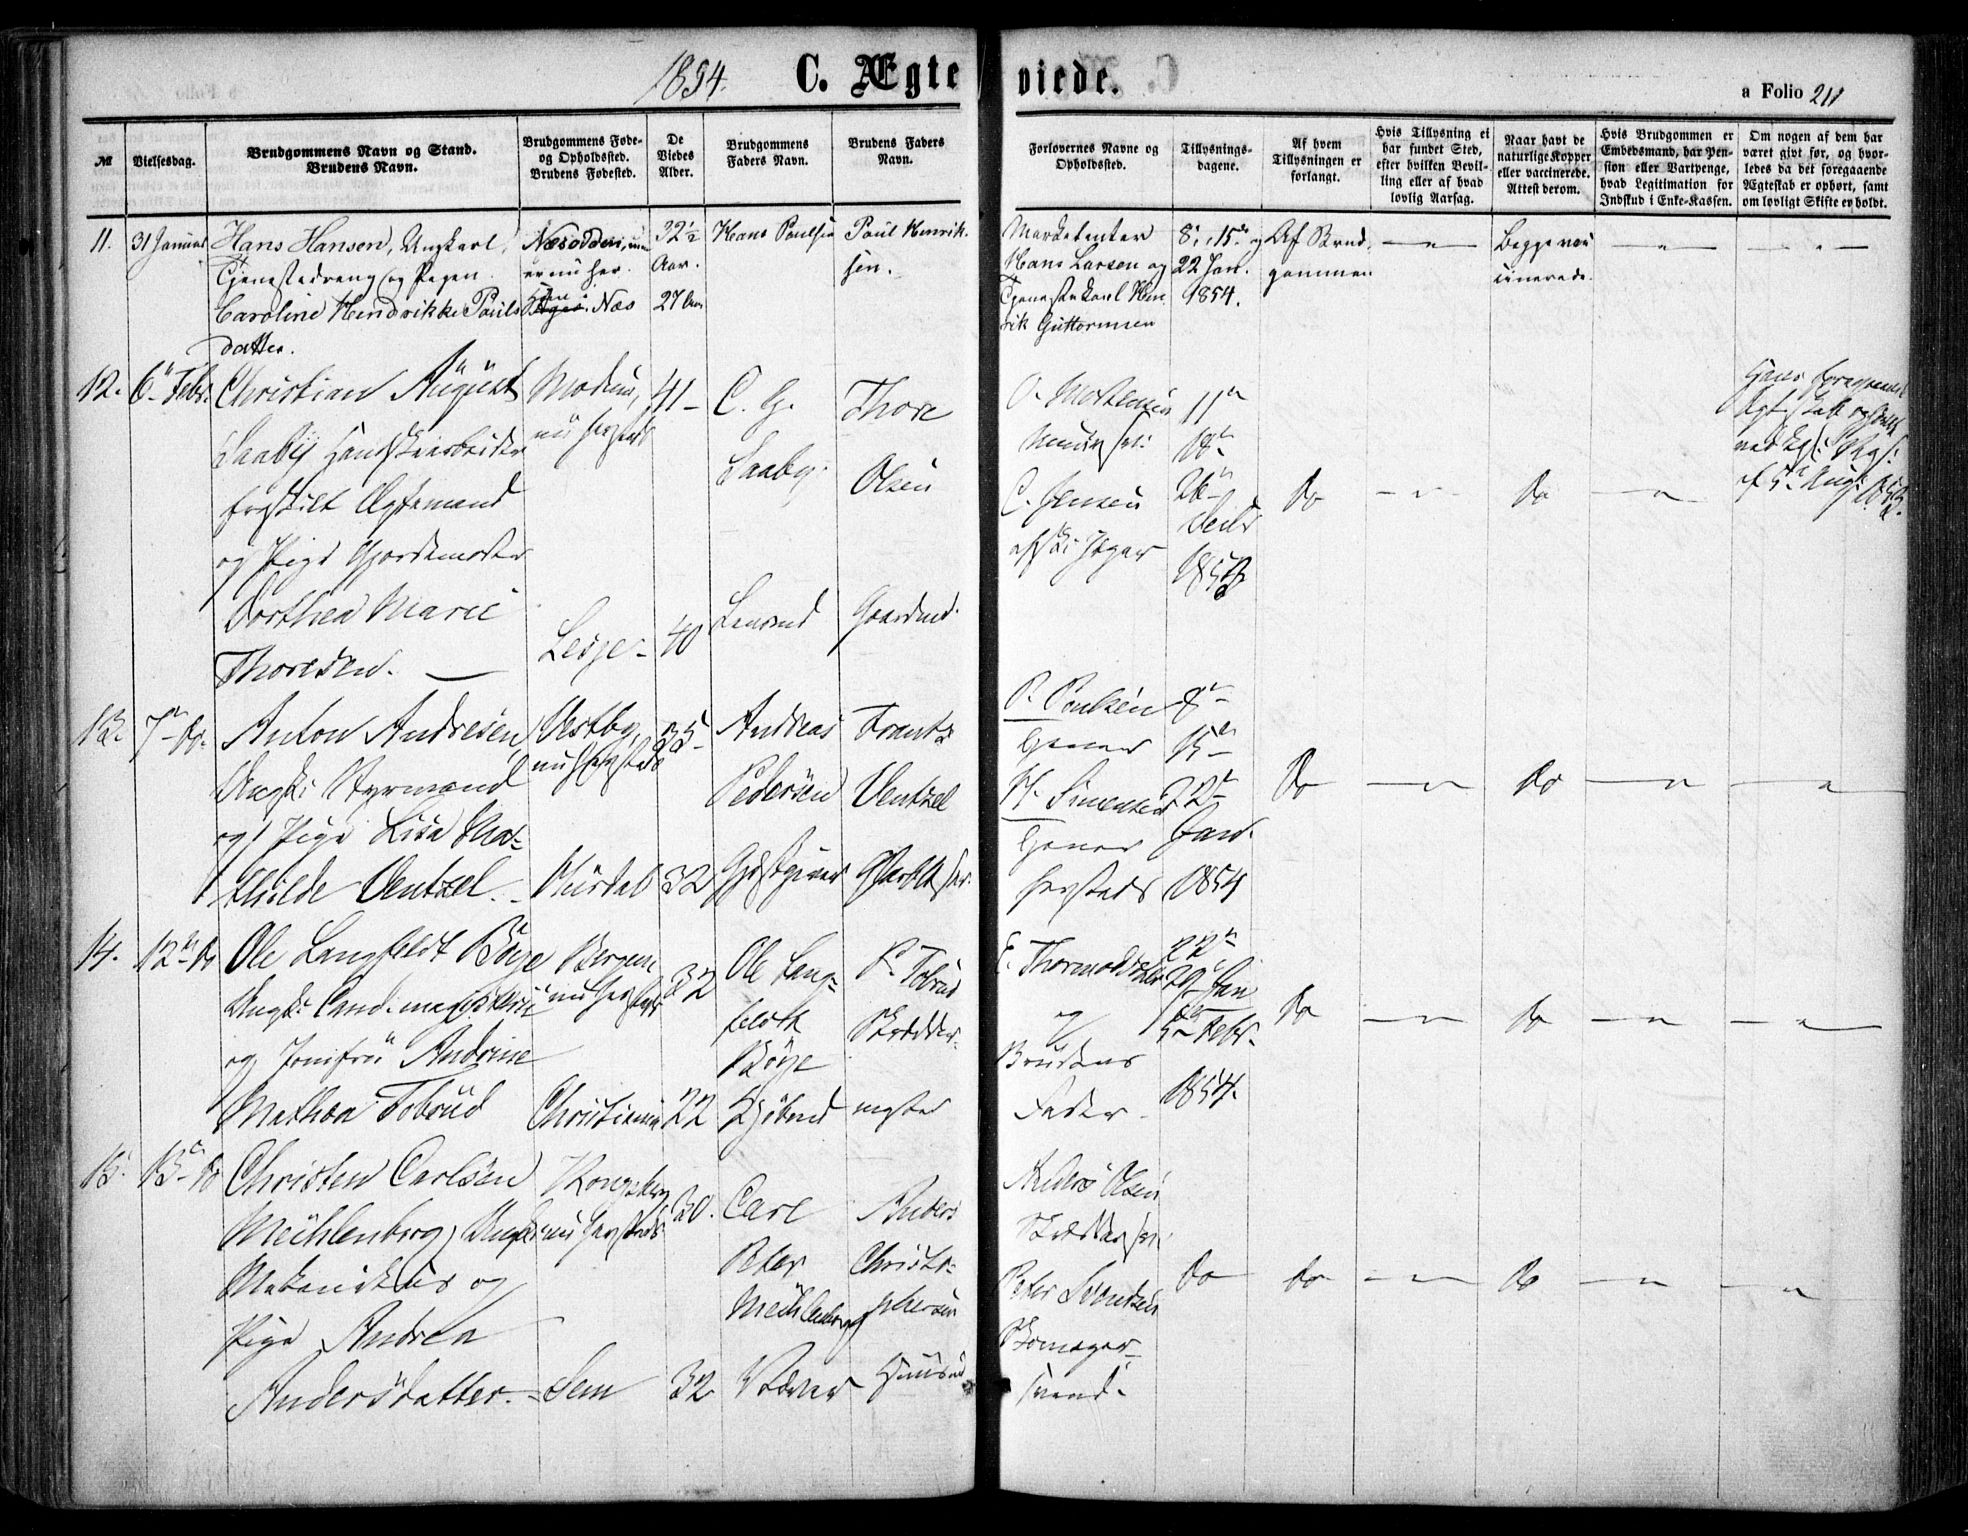 1854.
C. Ægteviede.
a Folio 211
№
Vielsesdag.
Brudgommens Navn og Stand.
Brudens Navn.
Brudgommens Føde-
og Opholdssted.
Brudens Fødested.
De
Viedes
Alder.
Brudgommens
Faders Navn.
Brudens Faders
Navn.
Forlovernes Navne og
Opholdssted.
Tillysnings-
dagene.
Af hvem
Tillysningen er
forlangt.
Hvis Tillysning ei
har fundet Sted,
efter hvilken Bevil-
ling eller af hvad
lovlig Aarsag.
Naar havt de
naturlige Kopper
eller vaccinerede.
Attest derom.
Hvis Brudgommen er
Embedsmand, har Pen-
sion eller Vartpenge,
hvad Legitimation for
Indskud i Enke-Kassen.
Om nogen af dem har
været givt før, og hvor-
ledes da det foregaaende
Ægteskab er ophørt, samt
om lovligt Skifte er holdt.
11.
31 Januar
Hans Hansen, Ungkarl,
Tjenestedreng og Pigen
Caroline Hendrikke Pauls
datter.
Næsodden,
er nu her.
Næs
32½
Aar.
27
Hans Paulsen
Paul Henrik-
sen.
Marketenter
Hans Larsen og
Tjenestekarl Hen
rik Guttormsen
8, 15 og
22 Jan.
1854.
Af Brud-
gommen
Begge vac
cinerede.
12.
6 Febr.
Christian August
Saaby Handskearbeider
fraskilt Ægtemand
og Pige Gjordemoder
Dorthea Marie
Thoresen.
Modum,
nu hersteds
Lesje
41
40
C. G.
Saaby.
Lensmd
Thore
Olsen
Gaardmd.
O. Mortensen
C. Jensen
Jæger
11
18
26
1853
do
do
Hans foregaaende
af 5 Aug. 1853.
13.
7 do.
Anton Andresen
Ungk. Styrmand
og Pige Lisa Ma-
thilde Ventzel
Vestby,
nu hersteds
Hurdal
35
32
Andreas
Pedersen
Gjestgiver
Frantz
Ventzel
P. Poulsen
H. Simensen
hersteds
8
15
22
Jan.
1854
do
do
14.
12 do
Ole Langfeldt Bøye
Ungk. Cand. magisterii
og Jomfru Andrine
Mathea Tobrud
Bergen
nu hersteds
Christiania
32
22
Ole Lang-
feldt
Bøye
Kjøbmd
P. Tobrud
Skrædder-
mester
E. Thormodsæter
og
Brudens
Fader
22
29 Jan
5 Febr.
1854.
do
do
15.
13 do
Christen Carlsen
Mühlenberg, Ungk.
Mekanikus og
Pige Andrea
Andersdatter.
Kongsberg
nu hersteds
Sem
30.
32
Carl
Peter
Mühlenberg
Væver
Anders
Christo-
phersen
Huusmd
Anders Olsen
Skrædder
Peter Svendsen
Skomager-
svend.
do
do
do